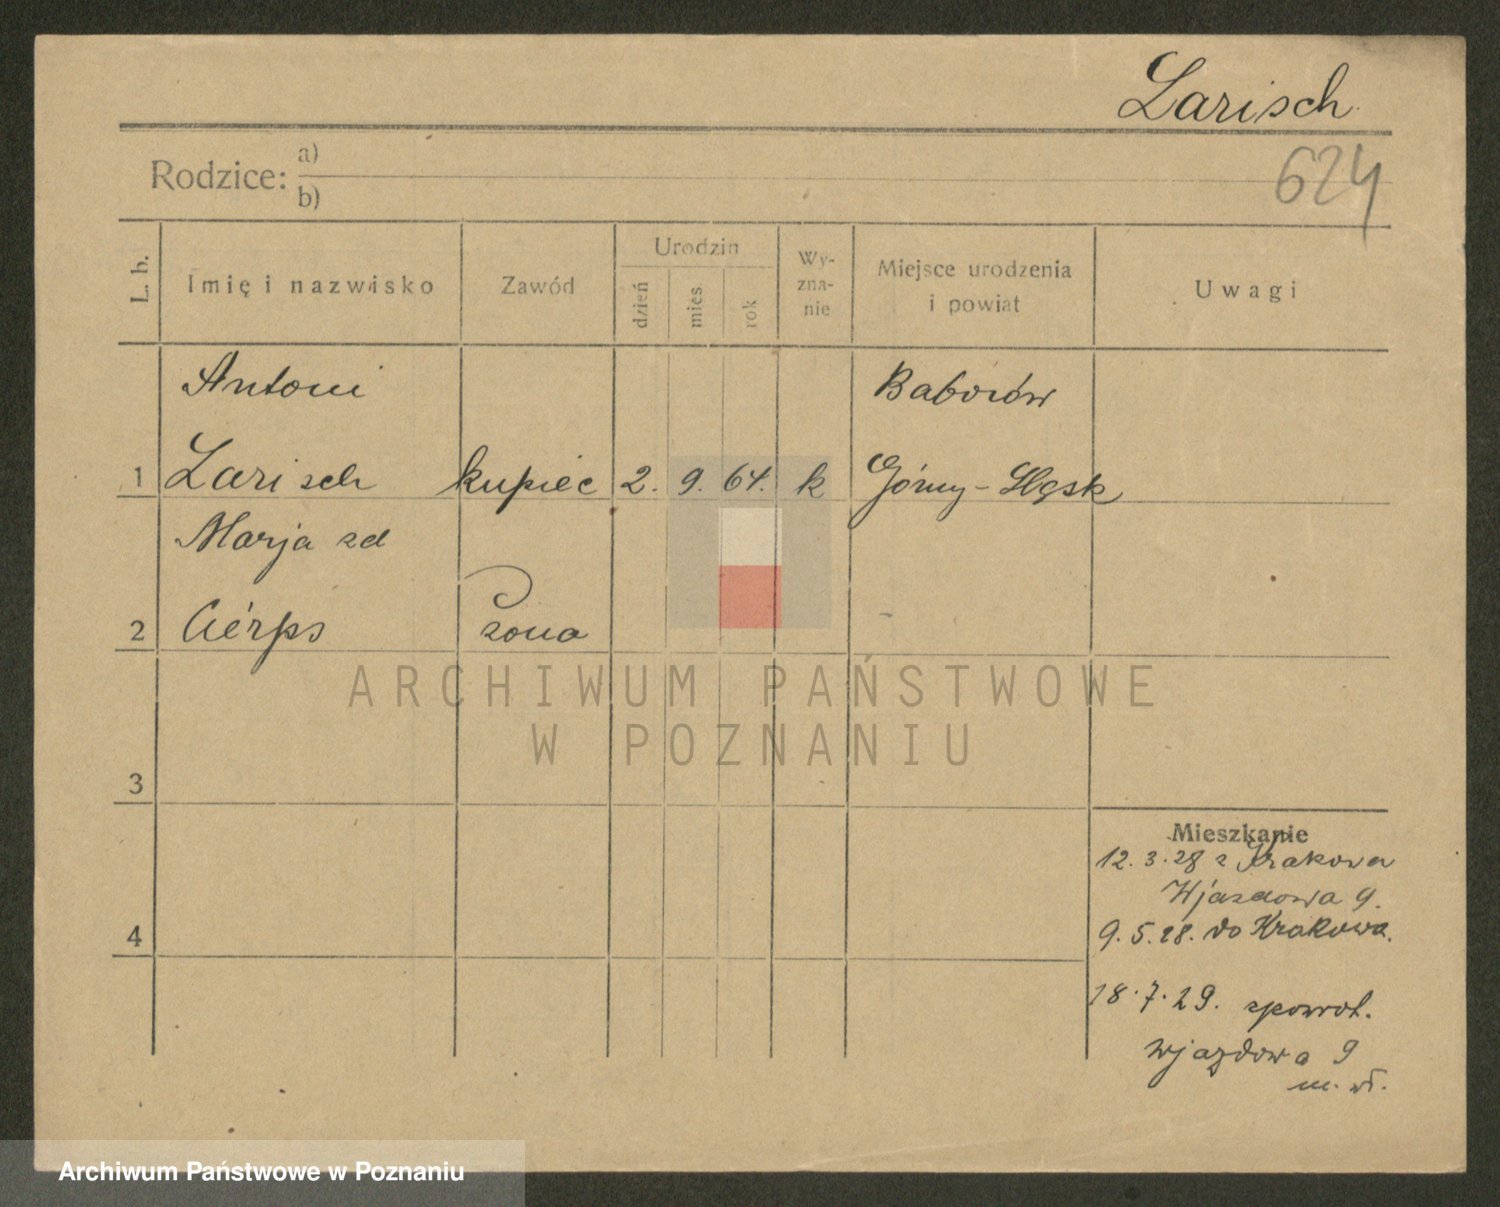 Larisch
Rodzice: a)
b)
624
L. b.
Imię i nazwisko
Zawód
Urodzin
dzień
mies.
rok
Wy-
zna-
nie
Miejsce urodzenia
i powiat
Uwagi
Antoni
Baborów
1 Larisch kupiec 2. 9. 64. k Górny-Śląsk
Marja zd
2 Cierps żona
3
4
Mieszkanie
12.3.28 z Krakowa
Wjazdowa 9.
9.5.28. do Krakowa.
18.7.29. zpowrot.
wjazdowa 9
m. wł.
ARCHIWUM PAŃSTWOWE
W POZNANIU
Archiwum Państwowe w Poznaniu